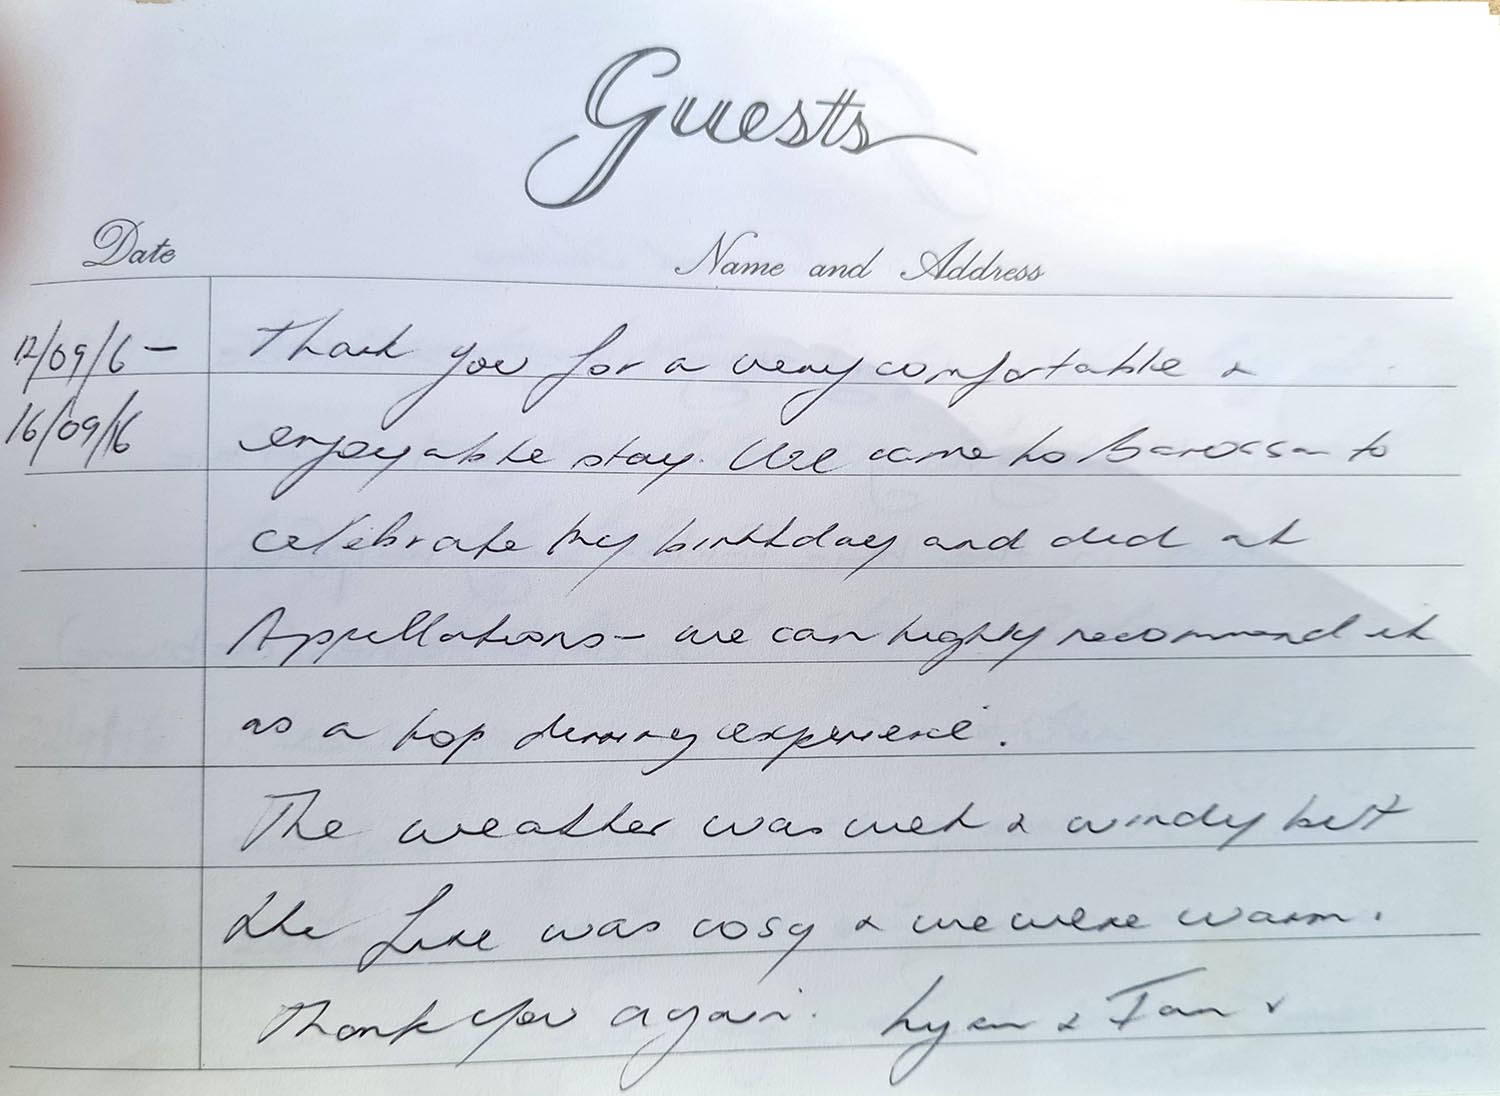 Guests
Date Name and Address
12/09/6 - Thank you for a very comfortable &
16/09/16 enjoyable stay. We came to Barossa to
celebrate my birthday and died at
Appellations - we can highly recommend it
as a top dining experience.
The weather was wet & windy but
the fire was cosy & we were warm.
Thank you again. Lyan & Ian